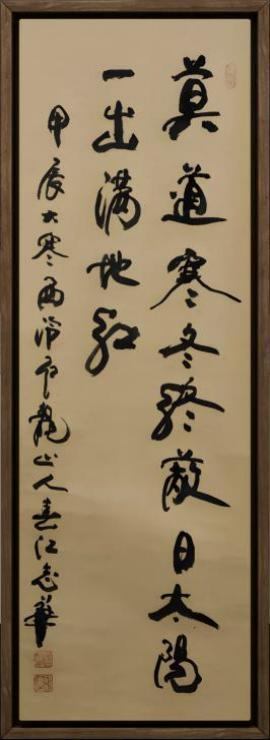 莫道寒冬終蔽日太陽
一出满地红
甲辰大寒西泠印龍山人春江志華